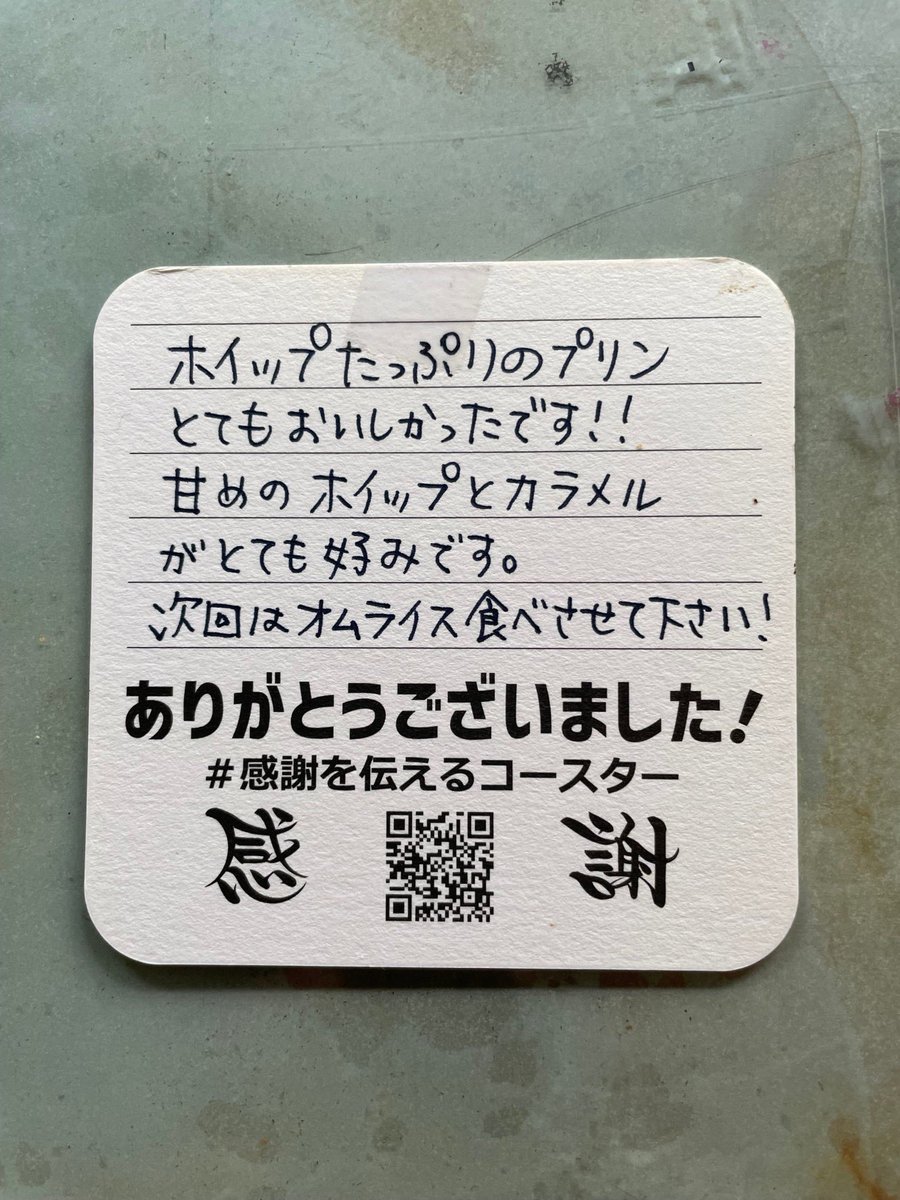 ホイップたっぷりのプリン
とてもおいしかったです!!
甘めのホイップとカラメル
がとても好みです。
次回はオムライス食べさせて下さい!
ありがとうございました!
#感謝を伝えるコースター